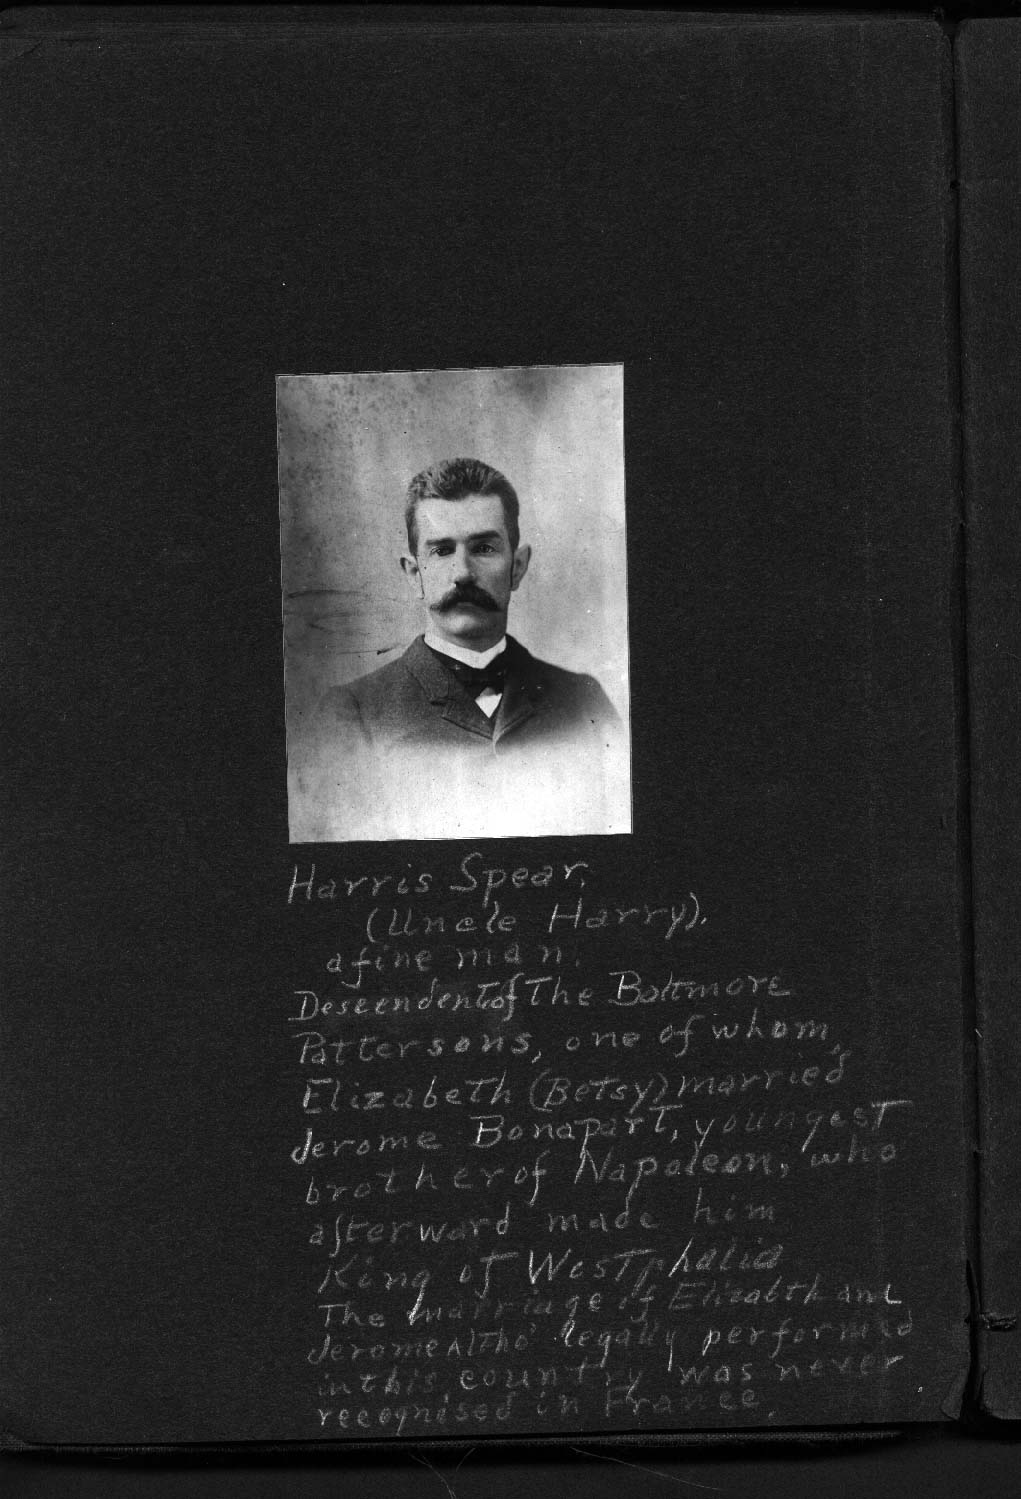 Harris Spear.
(Uncle Harry).
a fine man.
Descendent of The Baltmore
Pattersons, one of whom,
Elizabeth (Betsy) married
Jerome Bonapart, youngest
brother of Napoleon, who
afterward made him
King of Westphalia
The marriage of Elizabth and
Jerome Altho' legally performed
in this country was never
recognised in France.